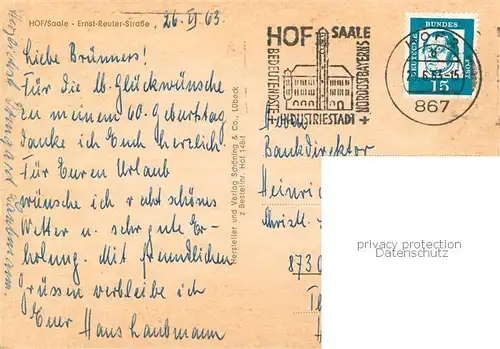 HOF/Saale - Ernst-Reuter-Straße
26. VI 63
Liebe Brünners!
Für die lb. Glückwünsche
zu meinem 60. Geburtstag
danke ich Euch herzlich.
Für Euren Urlaub
wünsche ich recht schönes
Wetter u. sehr gute Er-
holung. Mit freundlichen
Grüssen verbleibe ich
Euer Hans Laubmann
Herzlichst Irmgard Laubmann.
Hersteller und Verlag Schöning & Co., Lübeck
z Bestellnr. Hof 1481
HOF SAALE
BEDEUTENDSTE
INDUSTRIESTADT
NORDOSTBAYERNS
867
DEUTSCHE BUNDES POST
15
Bankdirektor
Heinri
8730
privacy protection
Datenschutz